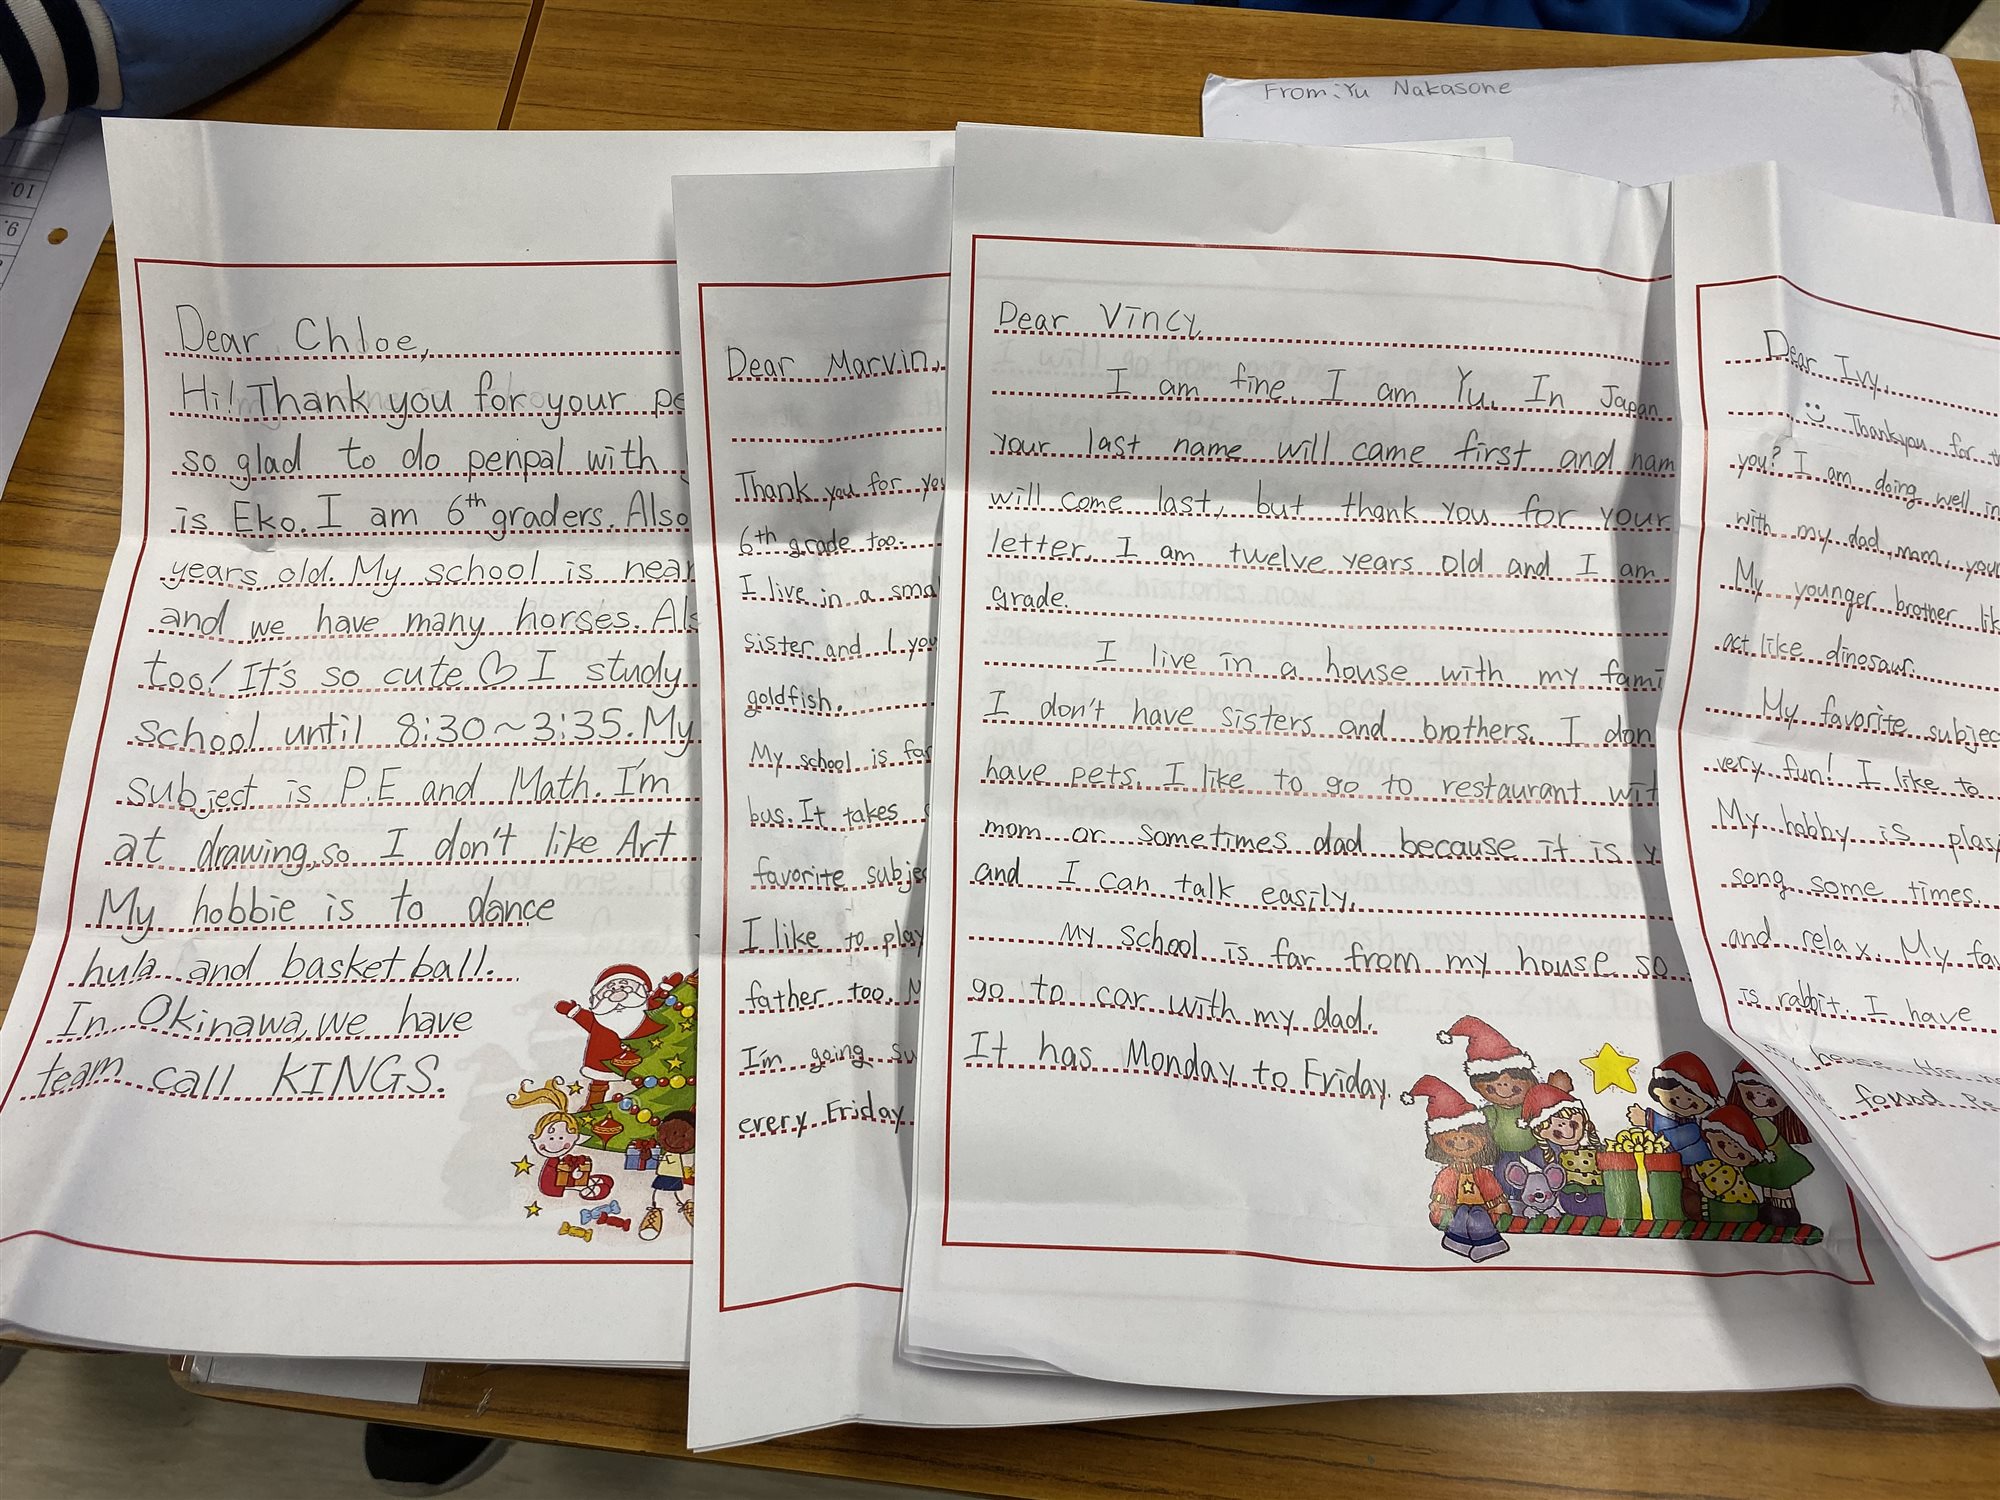 From: Yu Nakasone
10.
9.
Dear Chloe,
Hi! Thank you for your
so glad to do penpal with
is Eko. I am 6th graders. Also
years old. My school is near
and we have many horses.
too! It's so cute ♡ I study
school until 8:30~3:35. My
subject is P.E and Math. I'm
at drawing, so I don't like Art
My hobbie is to dance
hula and basketball.
In Okinawa, we have
team call KINGS.
Dear Marvin,
Thank you for
6th grade too.
I live in a
sister and I
goldfish.
My school is
bus. It takes
favorite
I like to play
father too.
I'm going
every Friday
Dear Vincy,
I am fine. I am Yu. In Japan
your last name will came first and
will come last, but thank you for your
letter. I am twelve years old and I am
grade.
I live in a house with my
I don't have sisters and brothers. I
have pets. I like to go to restaurant
mom or sometimes dad because it is
and I can talk easily.
My school is far from my house so
go to car with my dad.
It has Monday to Friday.
Dear Ivy,
Thankyou for
you? I am doing well
with my dad, mom,
My younger brother
act like dinosaur.
My favorite
very fun! I like to
My hobby is
song some times.
and relax. My
is rabbit. I have
house.
found